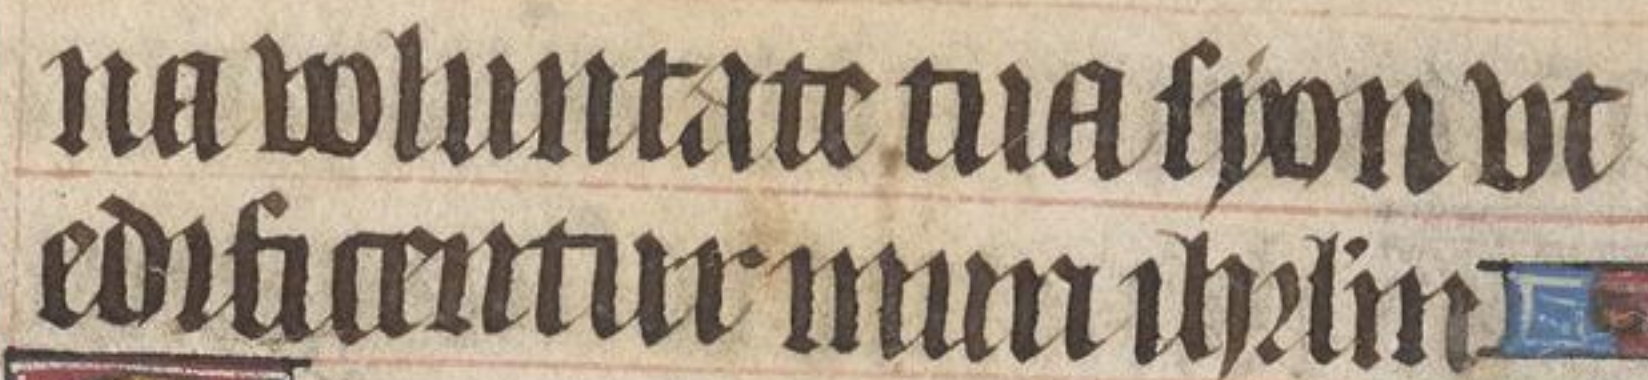 na voluntate tua syon vt
edificentur muri ihrlm